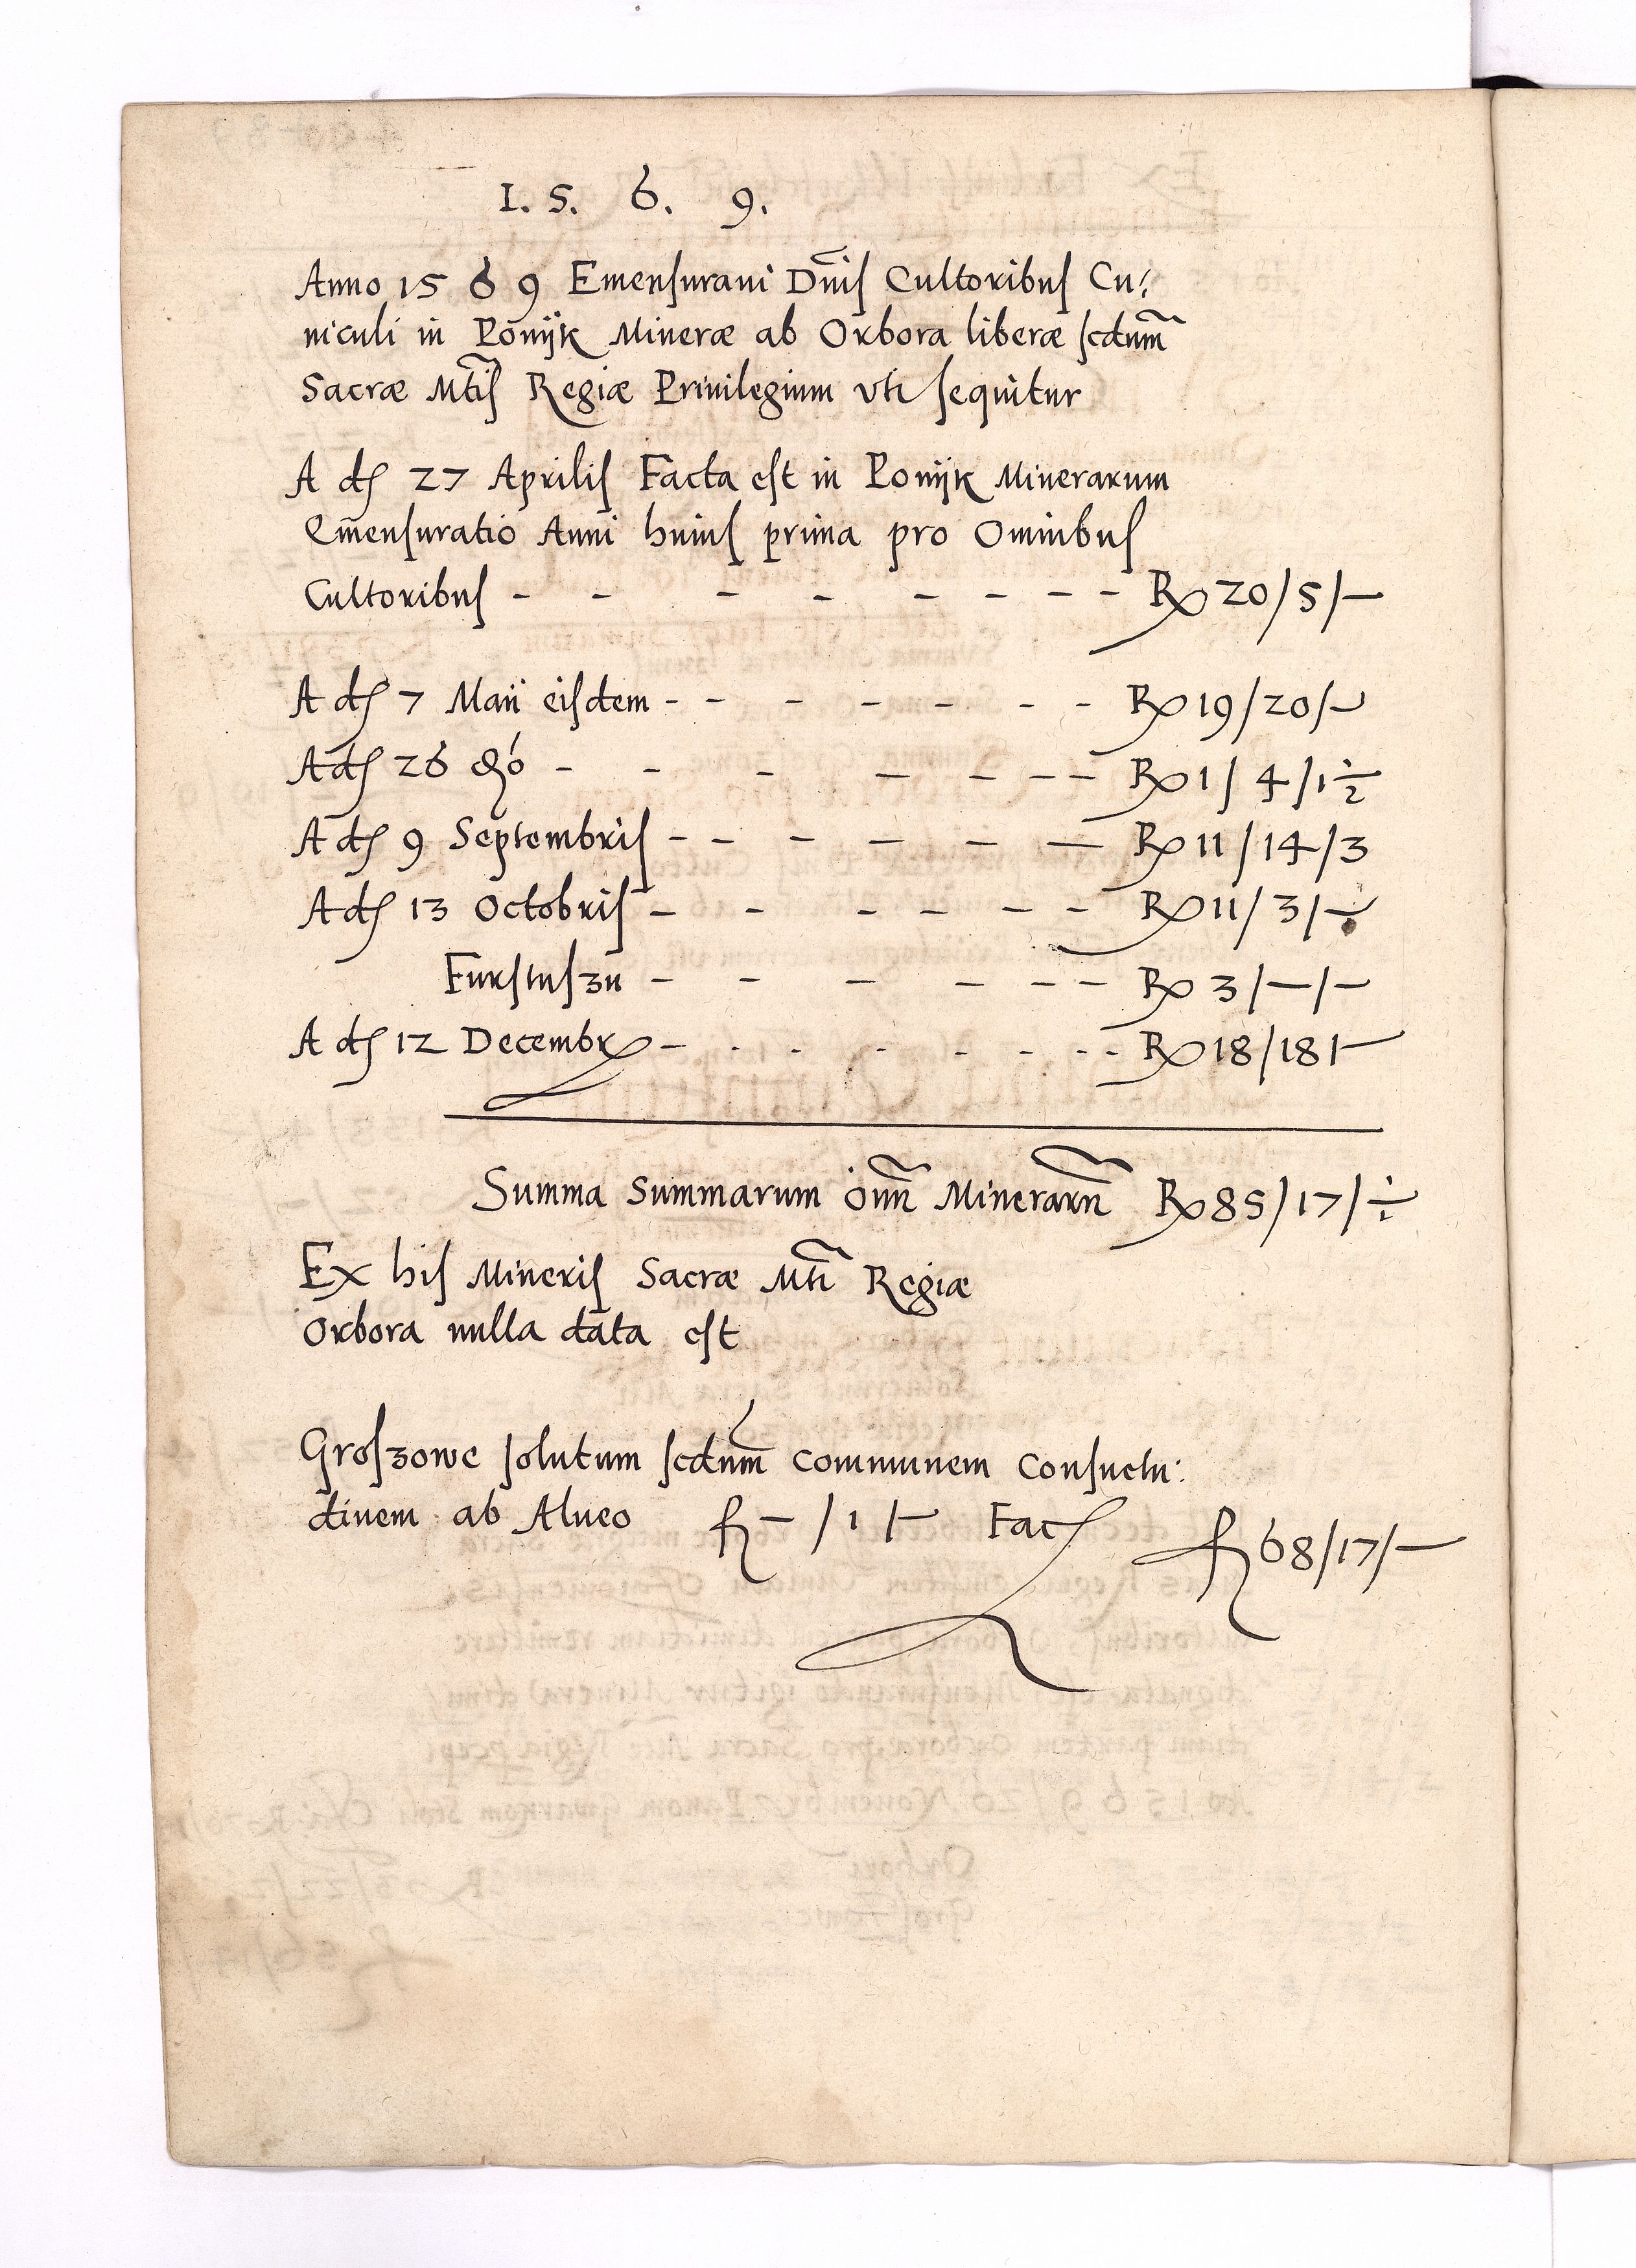 1. 5. 6. 9.
Anno 1569 Emensuraui Dnis Cultoribus Cu:
niculi in Ponijk Mineræ ab Orbora liberæ scdum
Sacræ Mtis Regiæ Priuilegium vti sequitur
A ds 27 Aprilis Facta est in Ponijk Minerarum
Emensuratio Anni huius prima pro Omnibus
Cultoribus - - - - - - - - 20/5/—
A ds 7 Maii eisdem - - - - - - - 19/20/—
A ds 26 - - - - - - - 1/4/1½
A ds 9 Septembris - - - - - — 11/14/3
A ds 13 Octobris - - - - - - 11/3/—
Furstuszu - - - - - - 3/—/—
A ds 12 Decembr - - - - - - - - - 18/18/—
Summa Summarum Minerarum 85/17/÷
Ex his Mineris Sacræ Mti Regiæ
Orbora nulla data est
Groszowe solutum scdum communem consuetu:
dinem ab Alueo f — /1/— Fac f 68/17/—